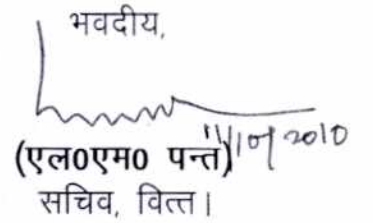 भवदीय,
11/10/2010
(एल0एम0 पन्त)
सचिव, वित्त।